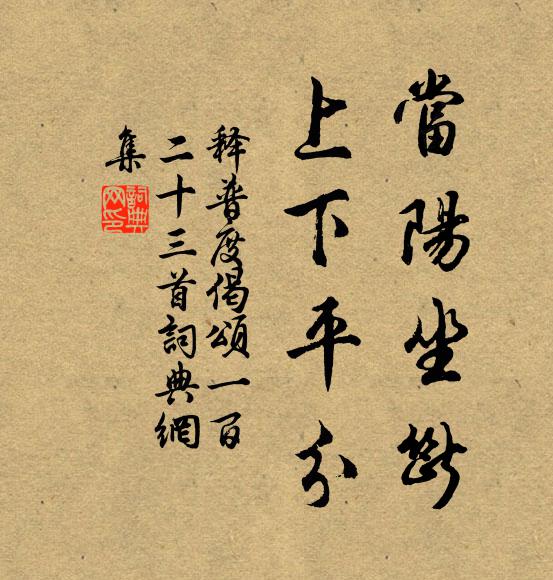 當陽坐斷
上下平分
释普度偈頌一百
二十三首詞典網
集
詞典
网印